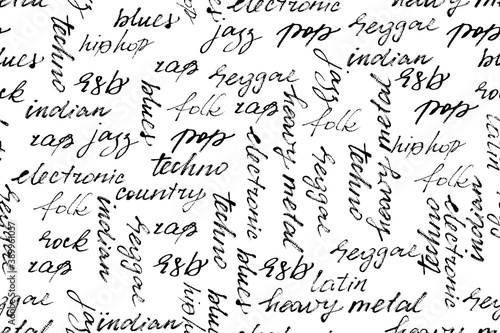 blues
electronic
heavy metal
hiphop
jazz
pop
reggae
blues
techno
rap
reggae
jazz
indian
r&b
r&b
rock
indian
blues
folk
rap
heavy metal
folk
heavy metal
pop
rap
jazz
pop
hiphop
techno
electronic
country
techno
electronic
reggae
techno
latin
folk
indian
reggae
indian
electronic
techno
rock
rap
r&b
r&b
reggae
latin
jazz
indian
rap
blues
heavy metal